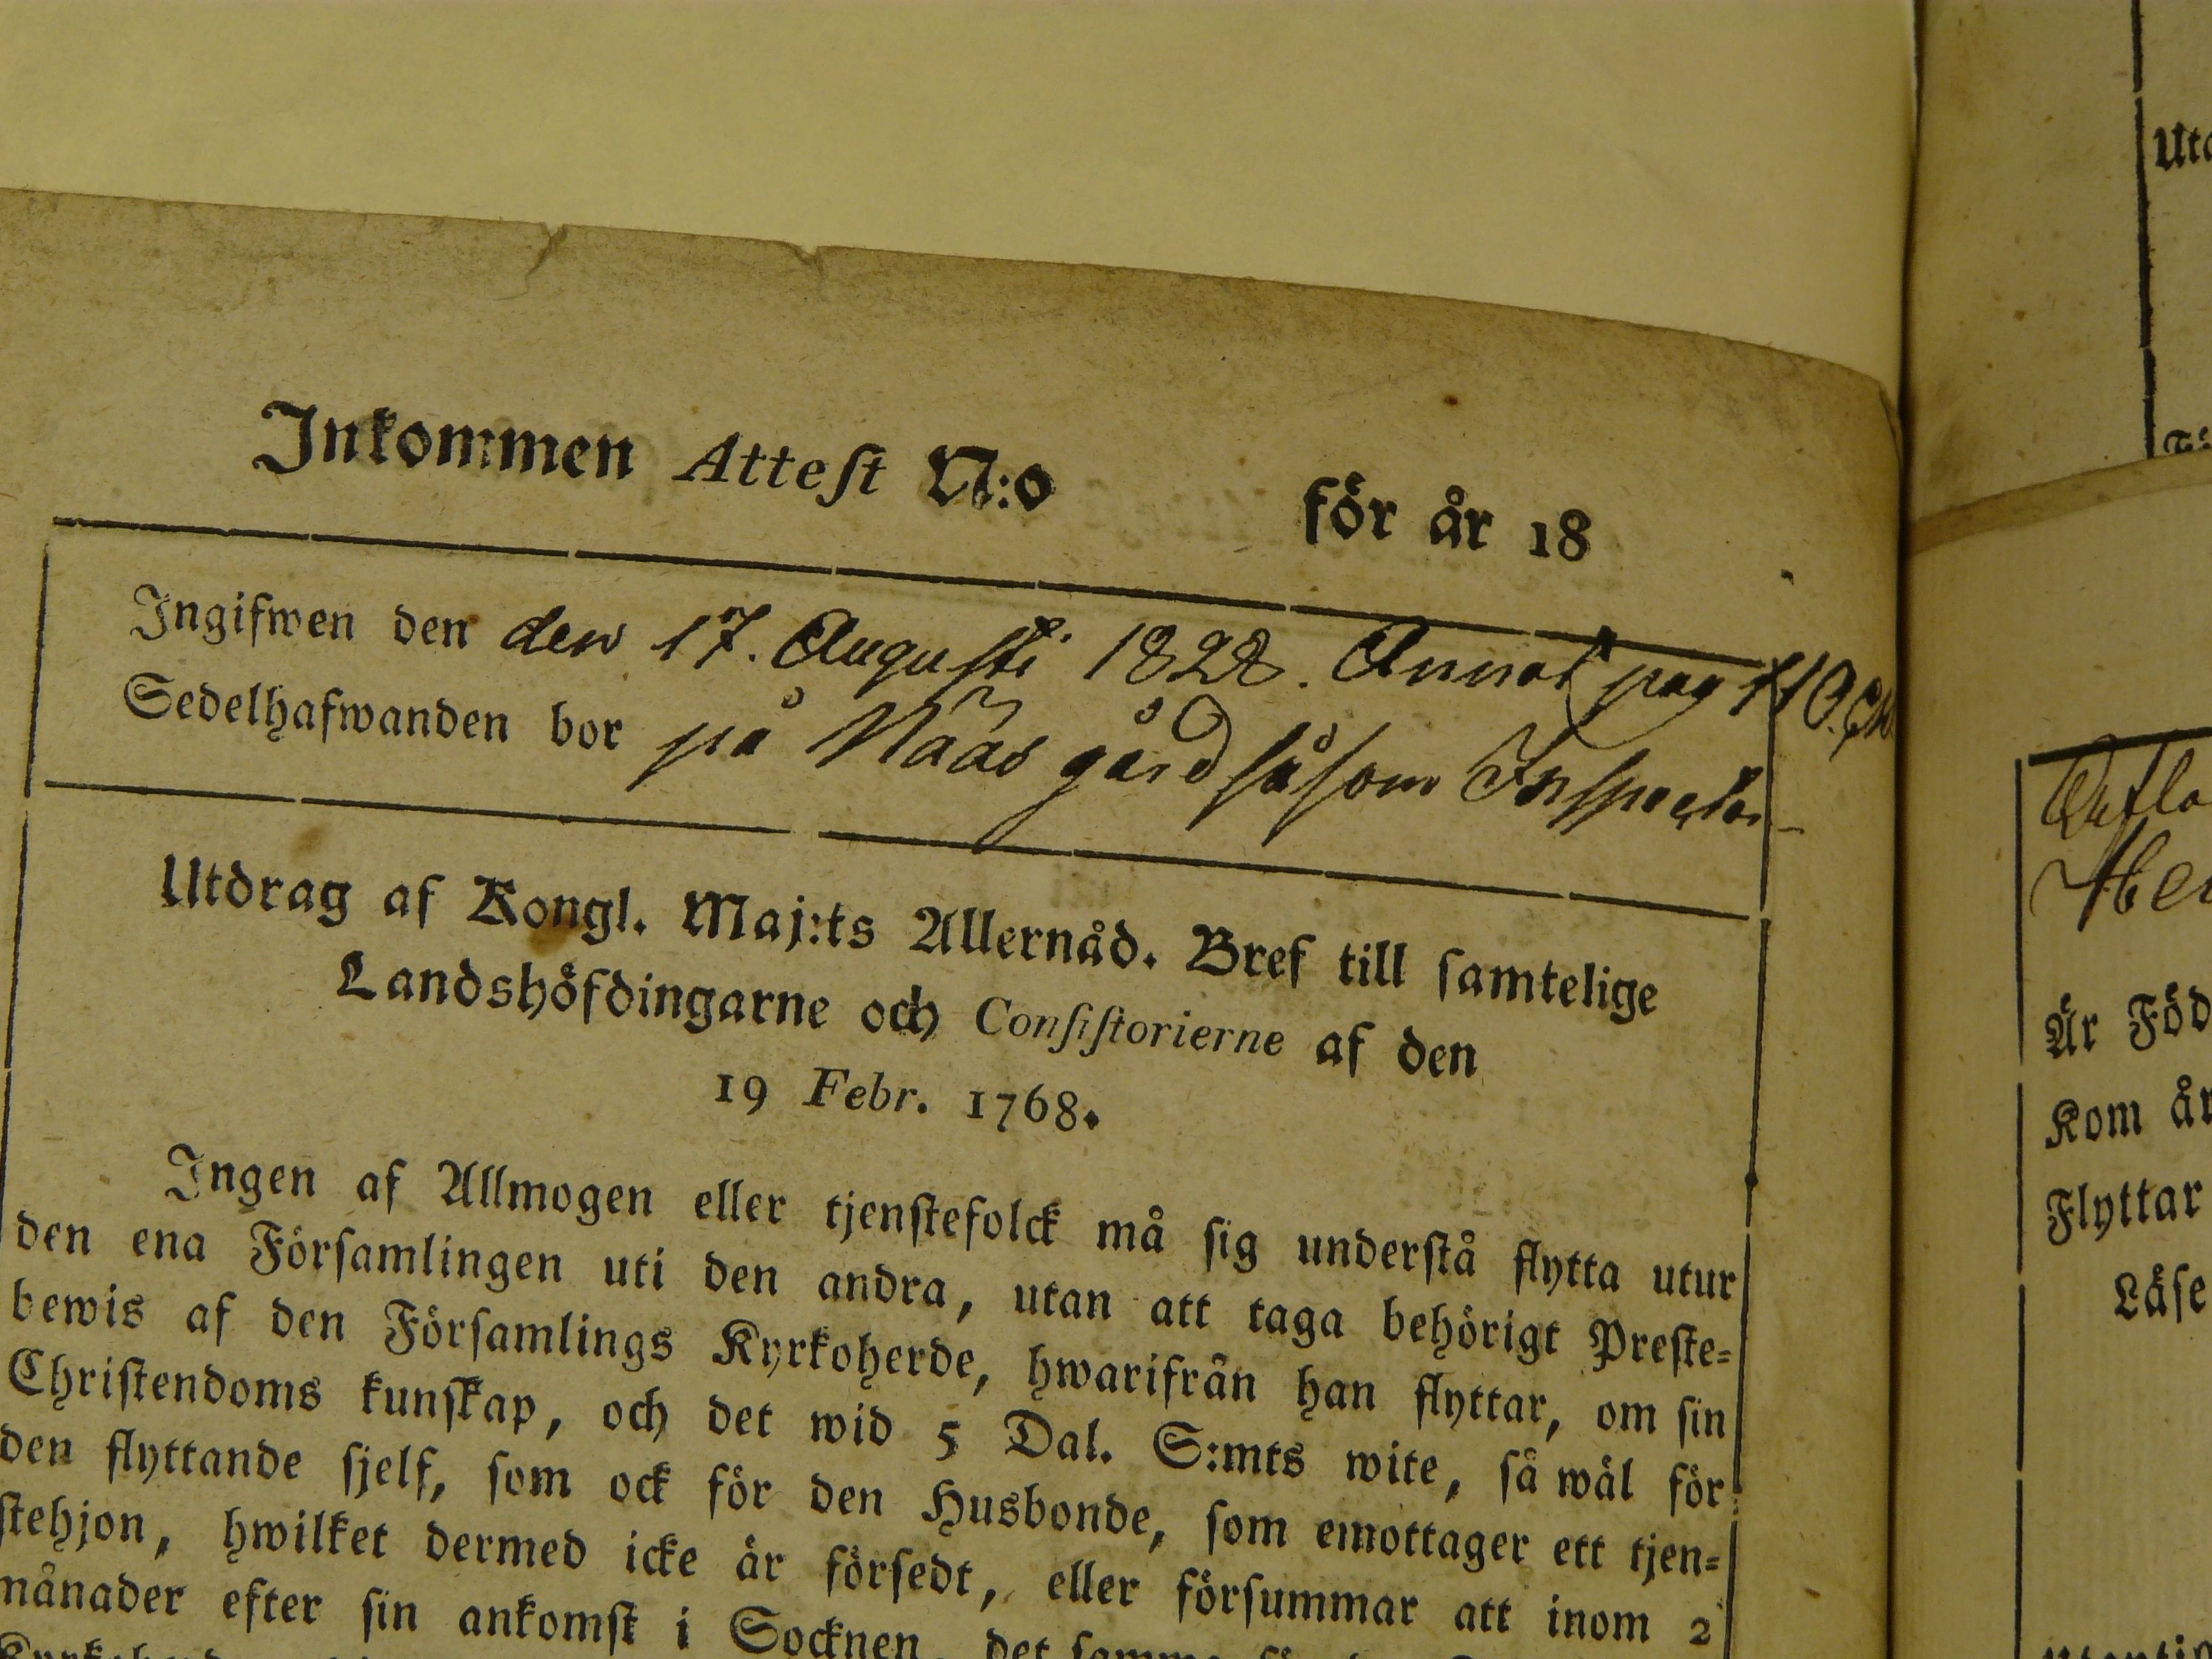 Inkommen Attest N:o för år 18
Ingifwen den den 17. Augusti 1828. Annot pag 110.
Sedelhafwanden bor på Nääs gård såsom Inspector
Utdrag af Kongl. Maj:ts Allernåd. Bref till samtelige
Landshöfdingarne och Consistorierne af den
19 Febr. 1768.
Ingen af Allmogen eller tjenstefolck må sig understå flytta utur
den ena Församlingen uti den andra, utan att taga behörigt Preste-
bewis af den Församlings Kyrkoherde, hwarifrån han flyttar, om sin
Christendoms kunskap, och det wid 5 Dal. S:mts wite, så wäl för
den flyttande sjelf, som ock för den Husbonde, som emottager ett tjen-
stehjon, hwilket dermed icke är försedt, eller försummar att inom 2
månader efter sin ankomst i Socknen, det samma
Är Föd
Kom år
Flyttar
Läse